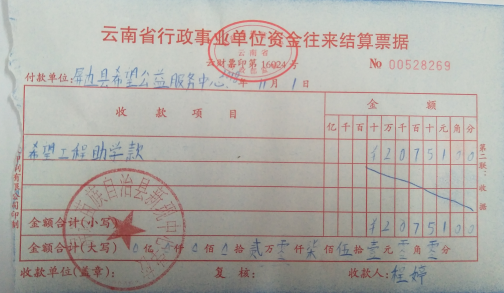 云南省行政事业单位资金往来结算票据
云财票印第16024号
No 00528269
付款单位:屏边县希望公益服务中心 年11月1日
收款项目 金额
亿千百十万千百十元角分
希望工程助学款 ¥2075100
金额合计(小写) ¥2075100
金额合计(大写) 0亿 仟0佰0拾贰万零仟柒佰伍拾壹元零角零分
收款单位(盖章): 复核: 收款人:程婷
第二联:收据